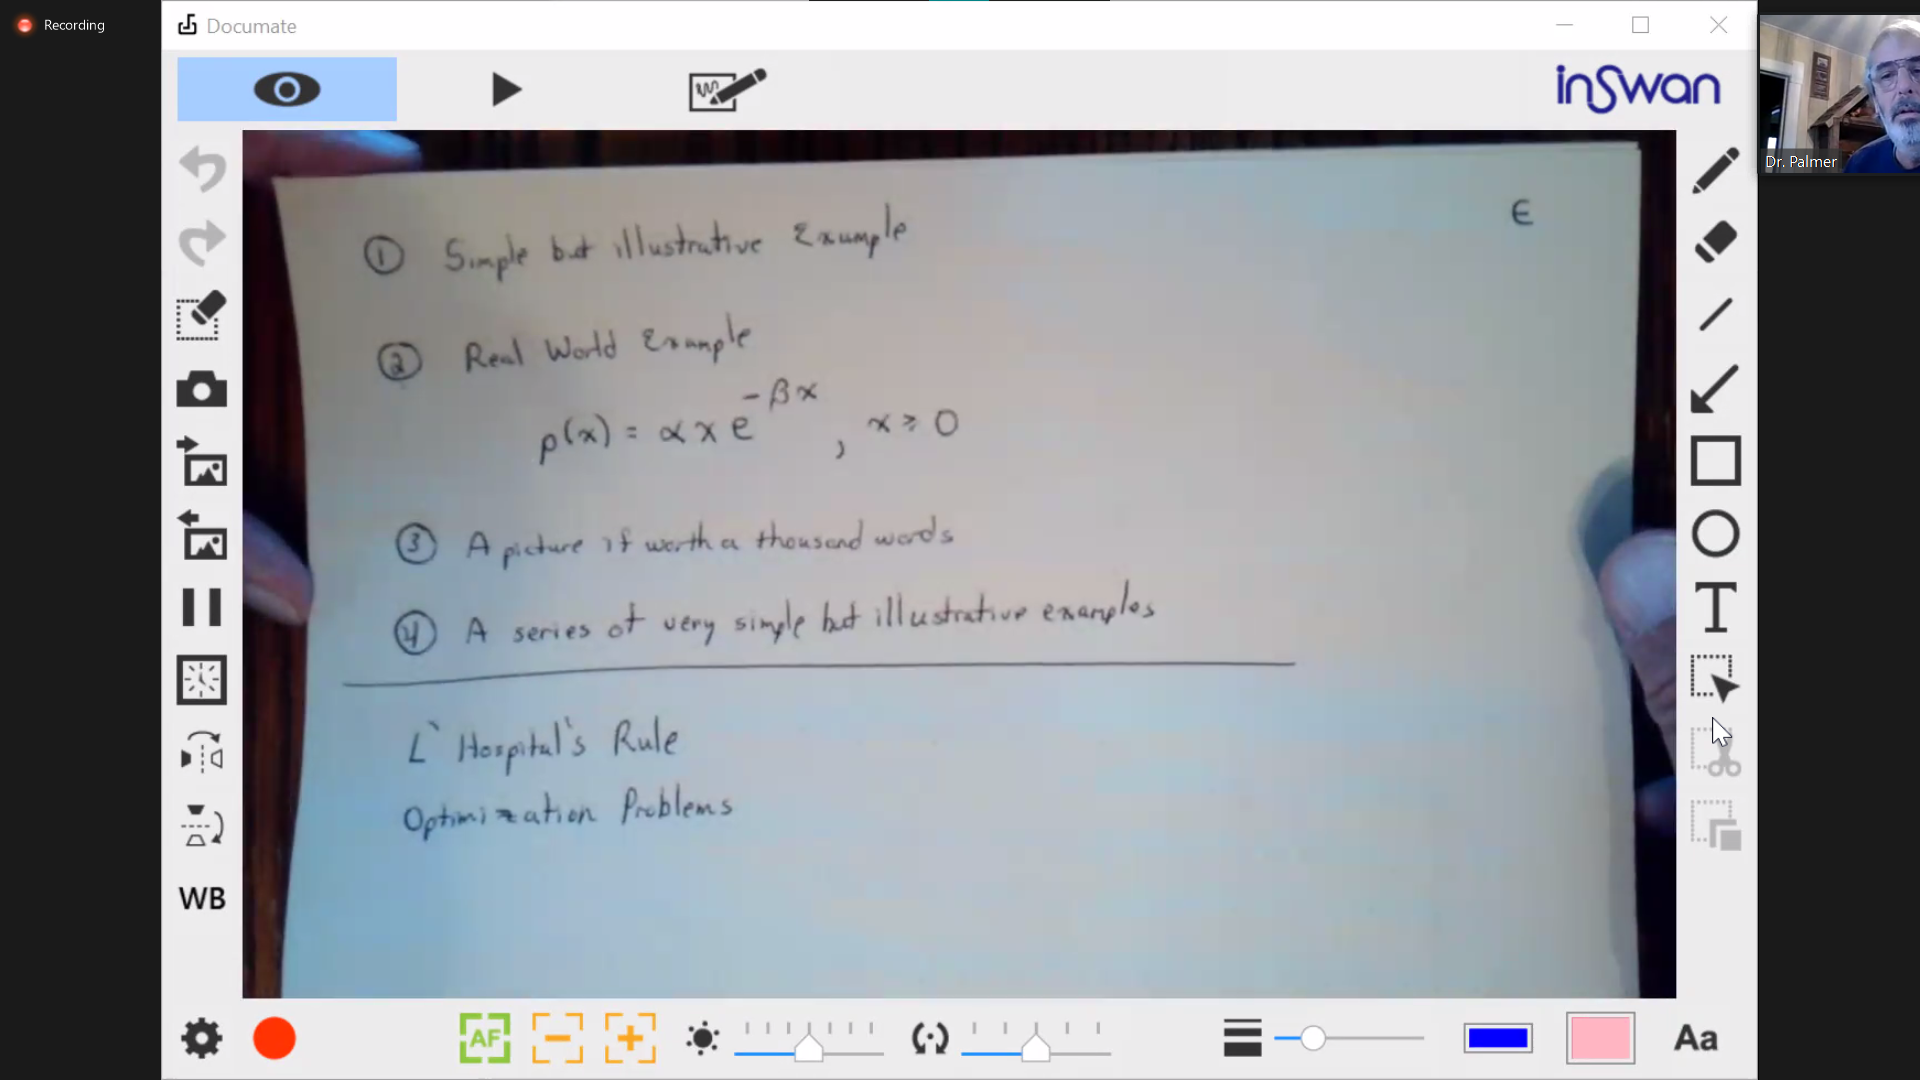 Recording
Documate
inSwan
Dr. Palmer
E
① Simple but illustrative Example
② Real World Example
p(x) = αxe^{-βx}, x ≥ 0
③ A picture if worth a thousand words
④ A series of very simple but illustrative examples
L`Hospital's Rule
Optimization Problems
T
WB
AF
Aa